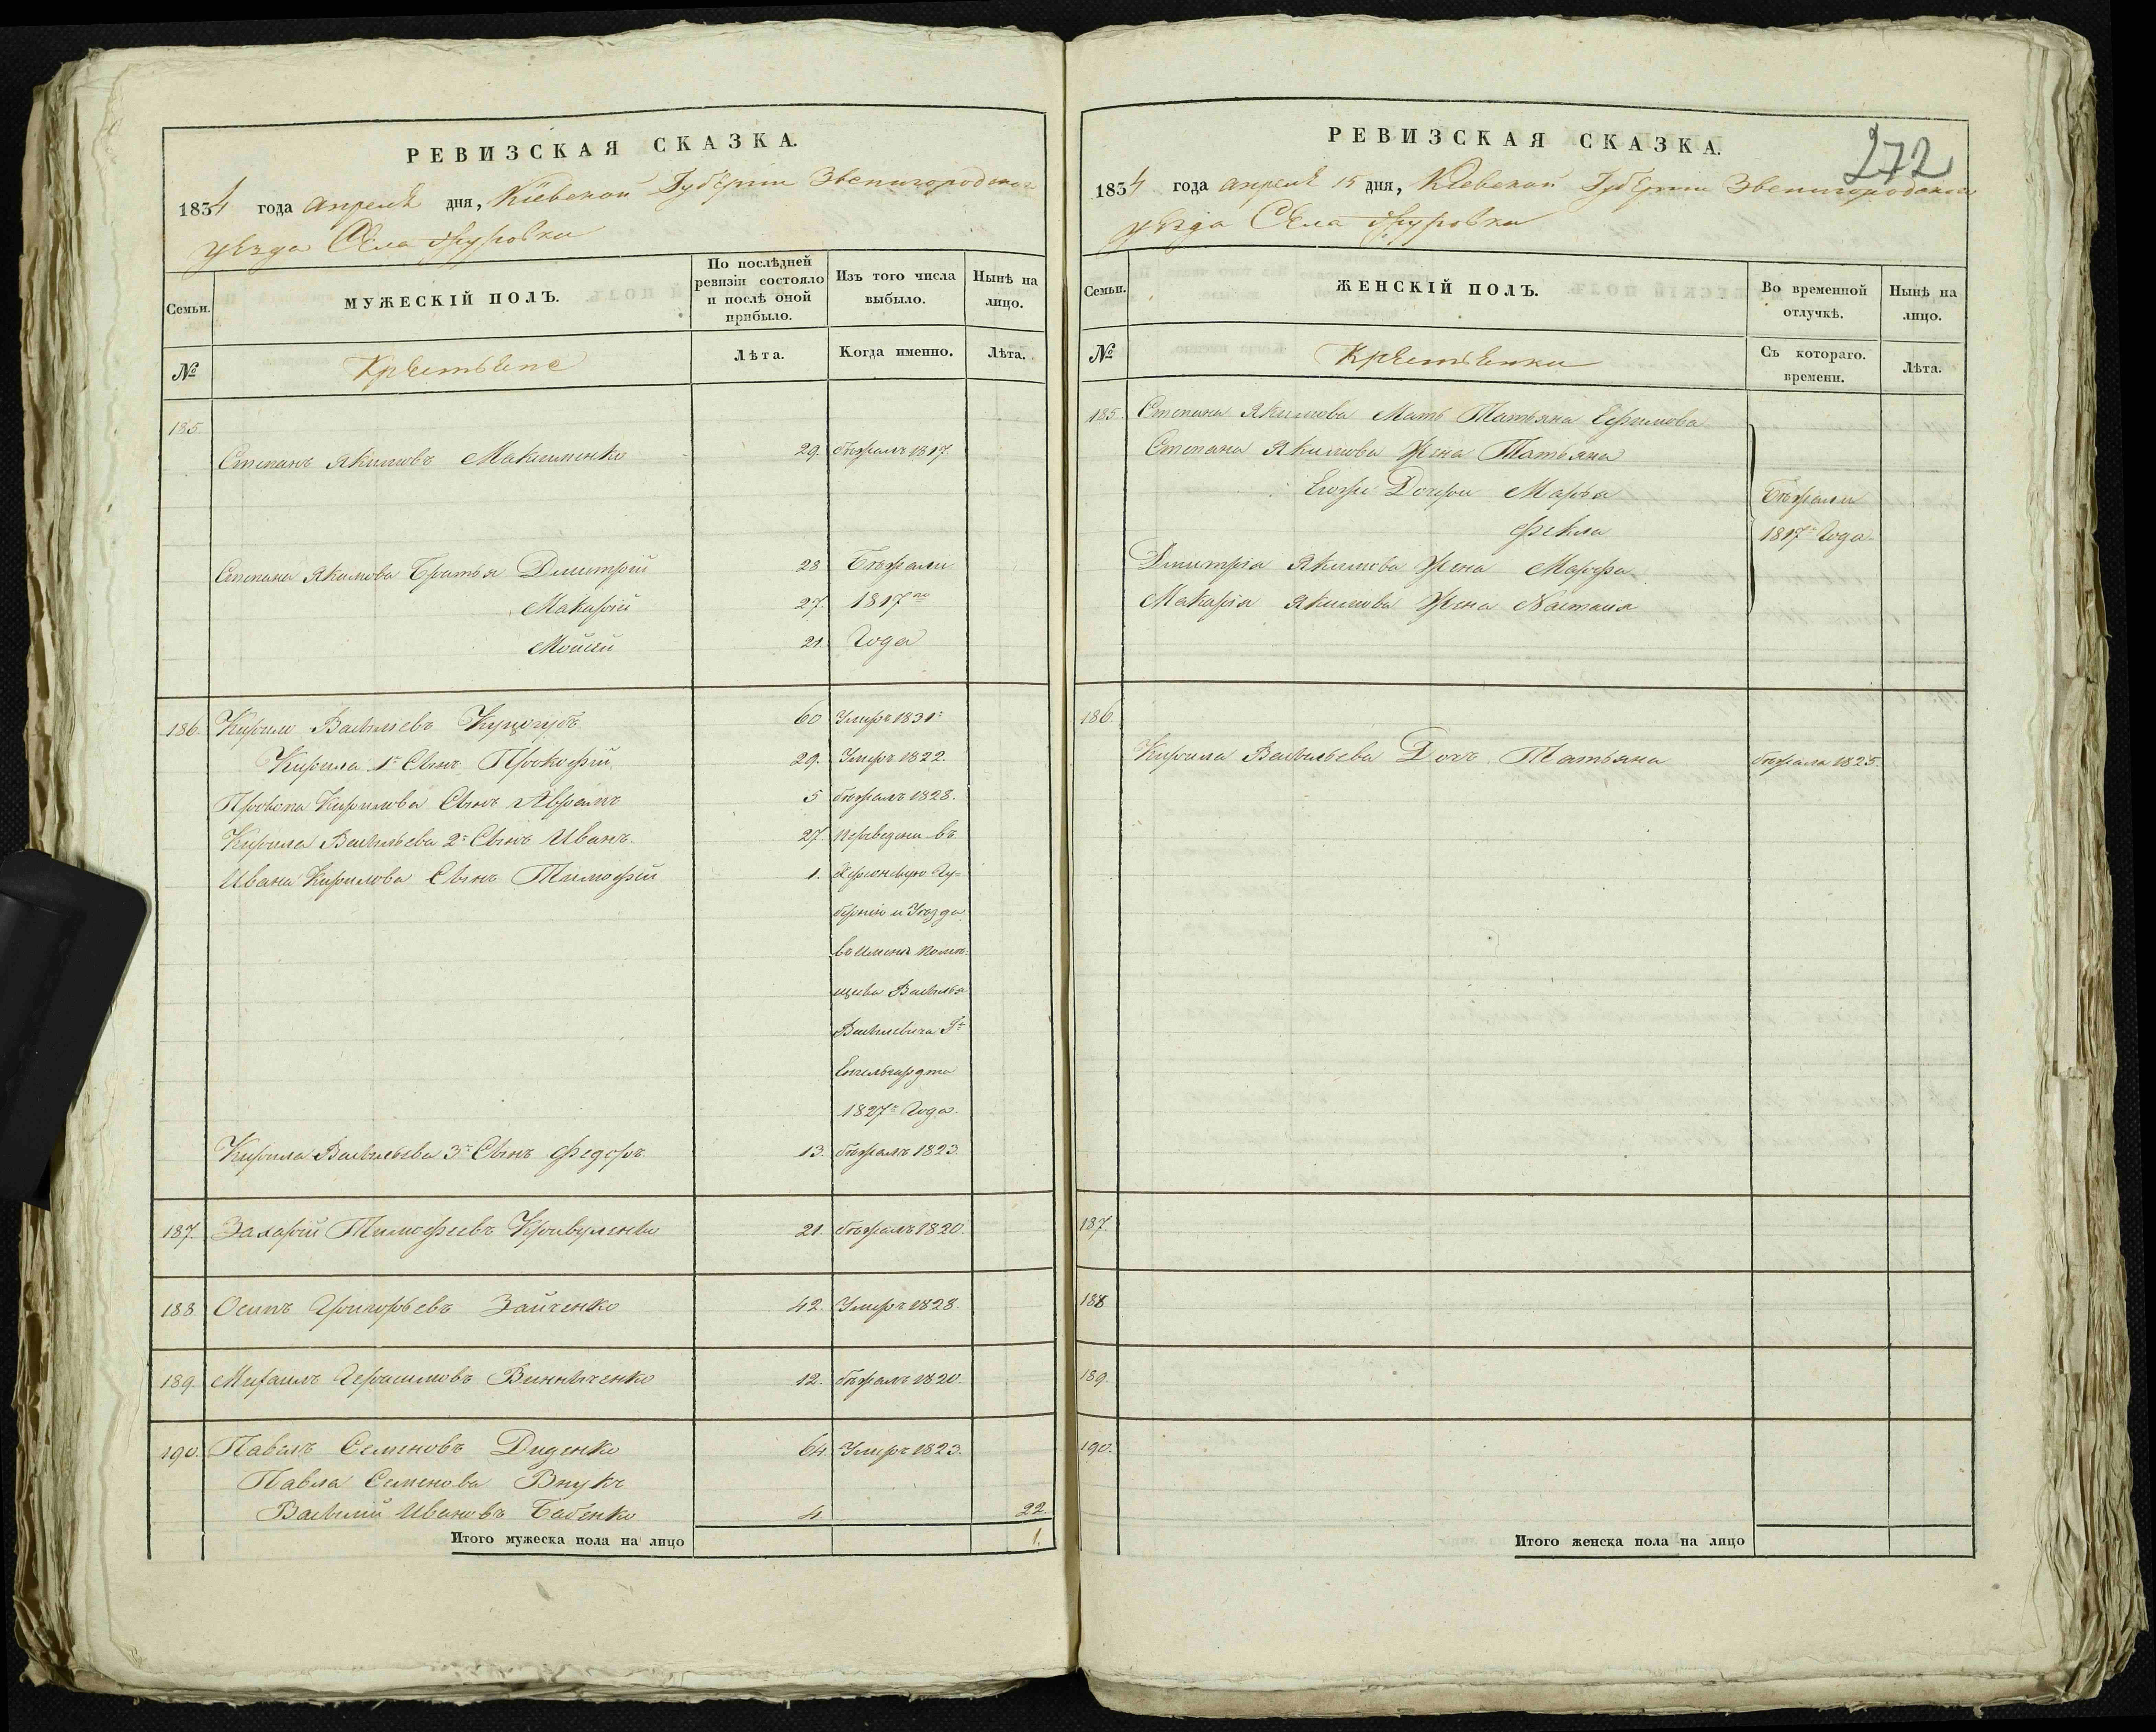 РЕВИЗСКАЯ СКАЗКА.
1834 года Апреля дня, Кіевской Губерніи Звенигородского
уезда Села
Семьи.
МУЖЕСКІЙ ПОЛЪ.
По послѣдней ревизіи состояло и послѣ оной прибыло.
Изъ того числа выбыло.
Нынѣ на лицо.
№
Крестьяне
Лѣта.
Когда именно.
Лѣта.
185.
Степанъ Якимовъ Максименко 29. бѣжалъ 1817
Степана Якимова Братья Дмитрій 28 Бѣжали
Макарій 27. 1817го
Мойсей 21. Года
186. Кирило Васильевъ 60 Умеръ 1831:
Кирила 1й Сынъ Прокофій 29. Умеръ 1822.
Кирилова Сынъ Абрамъ 5 бѣжалъ 1828.
Кирила Васильева 2й Сынъ Иванъ. 27. переведены въ
Ивана Кирилова Сынъ Тимофей 1. Херсонскую Гу=
бернію и Уезда
въ имение помѣ=
щика Василья
Васильевича
Енгельгардта
1827 Года.
Кирила Васильева 3й Сынъ Федоръ. 13. бѣжалъ 1823.
187. Захарій Тимофеевъ Кривуленко 21. бѣжалъ 1820.
188 Осипъ Григорьевъ Зайченко 42. Умеръ 1828.
189. Михаилъ Герасимовъ Винниченко 12. бѣжалъ 1820.
190. Павелъ Семеновъ Диденко 64. Умеръ 1823.
Павла Семенова Внукъ
Василий Ивановъ Бабенко 4. 22.
Итого мужеска пола на лицо 1.
РЕВИЗСКАЯ СКАЗКА.
272
1834 года Апреля 15 дня, Кіевской Губерніи Звенигородского
уезда Села
Семьи.
ЖЕНСКІЙ ПОЛЪ.
Во временной отлучкѣ.
Нынѣ на лицо.
№
Крестьянки
Съ котораго. времени.
Лѣта.
185. Степана Якимова Мать Татьяна Ефимова
Степана Якимова Жена Татьяна
Егоже Дочери Марья Бѣжали
Фекла 1817 Года
Дмитрія Якимова Жена Марфа
Макарія Якимова Жена Настасія
186.
Кирила Васильева Дочь Татьяна бѣжала 1825.
187.
188
189.
190.
Итого женска пола на лицо